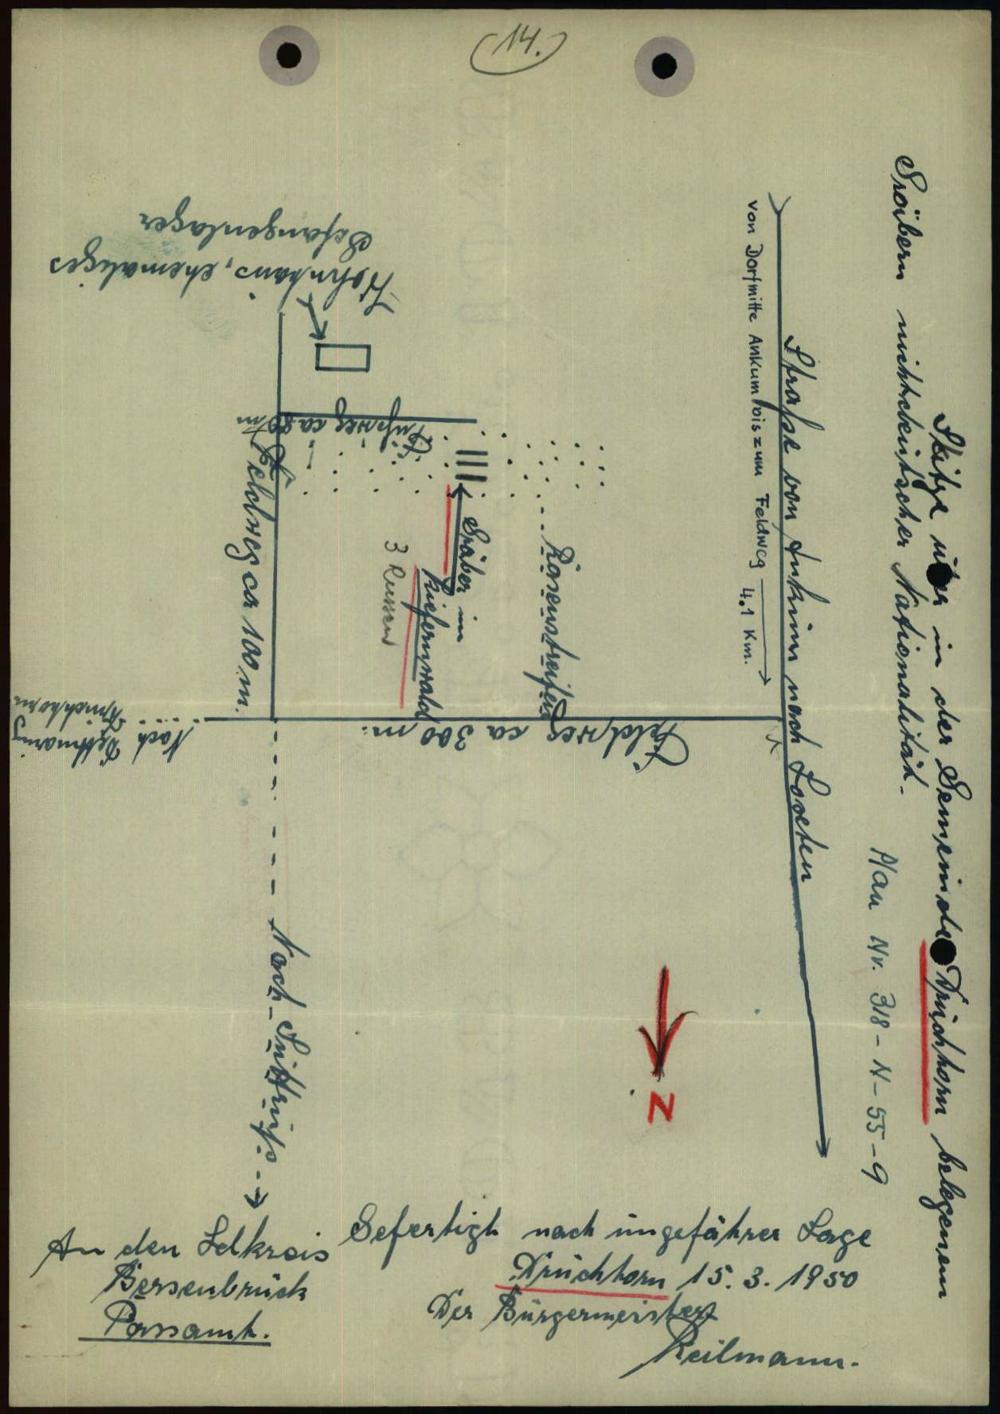 14.
Skitze über in der Gemeinde Druchhorn belegenem
Gräbern nichtdeutscher Nationalität.
Plan Nr. 318-N-55-9
Straße von Ankum nach Loxten
von Dorfmitte Ankum bis zum Feldweg 4.1 Km.
Wohnhaus, ehemaliges
Gefangenlager
Fußweg ca 80 m
Feldweg ca 100 m.
Gräber in
Kiefernwald
3 Russen
Feldweg ca 300 m.
Nach
Druchhorn
Nach
N
Gefertigt nach ungefährer Lage
Druchhorn 15.3.1950
Der Bürgermeister
Keilmann.
An den Ldkreis
Bersenbrück
Passamt.